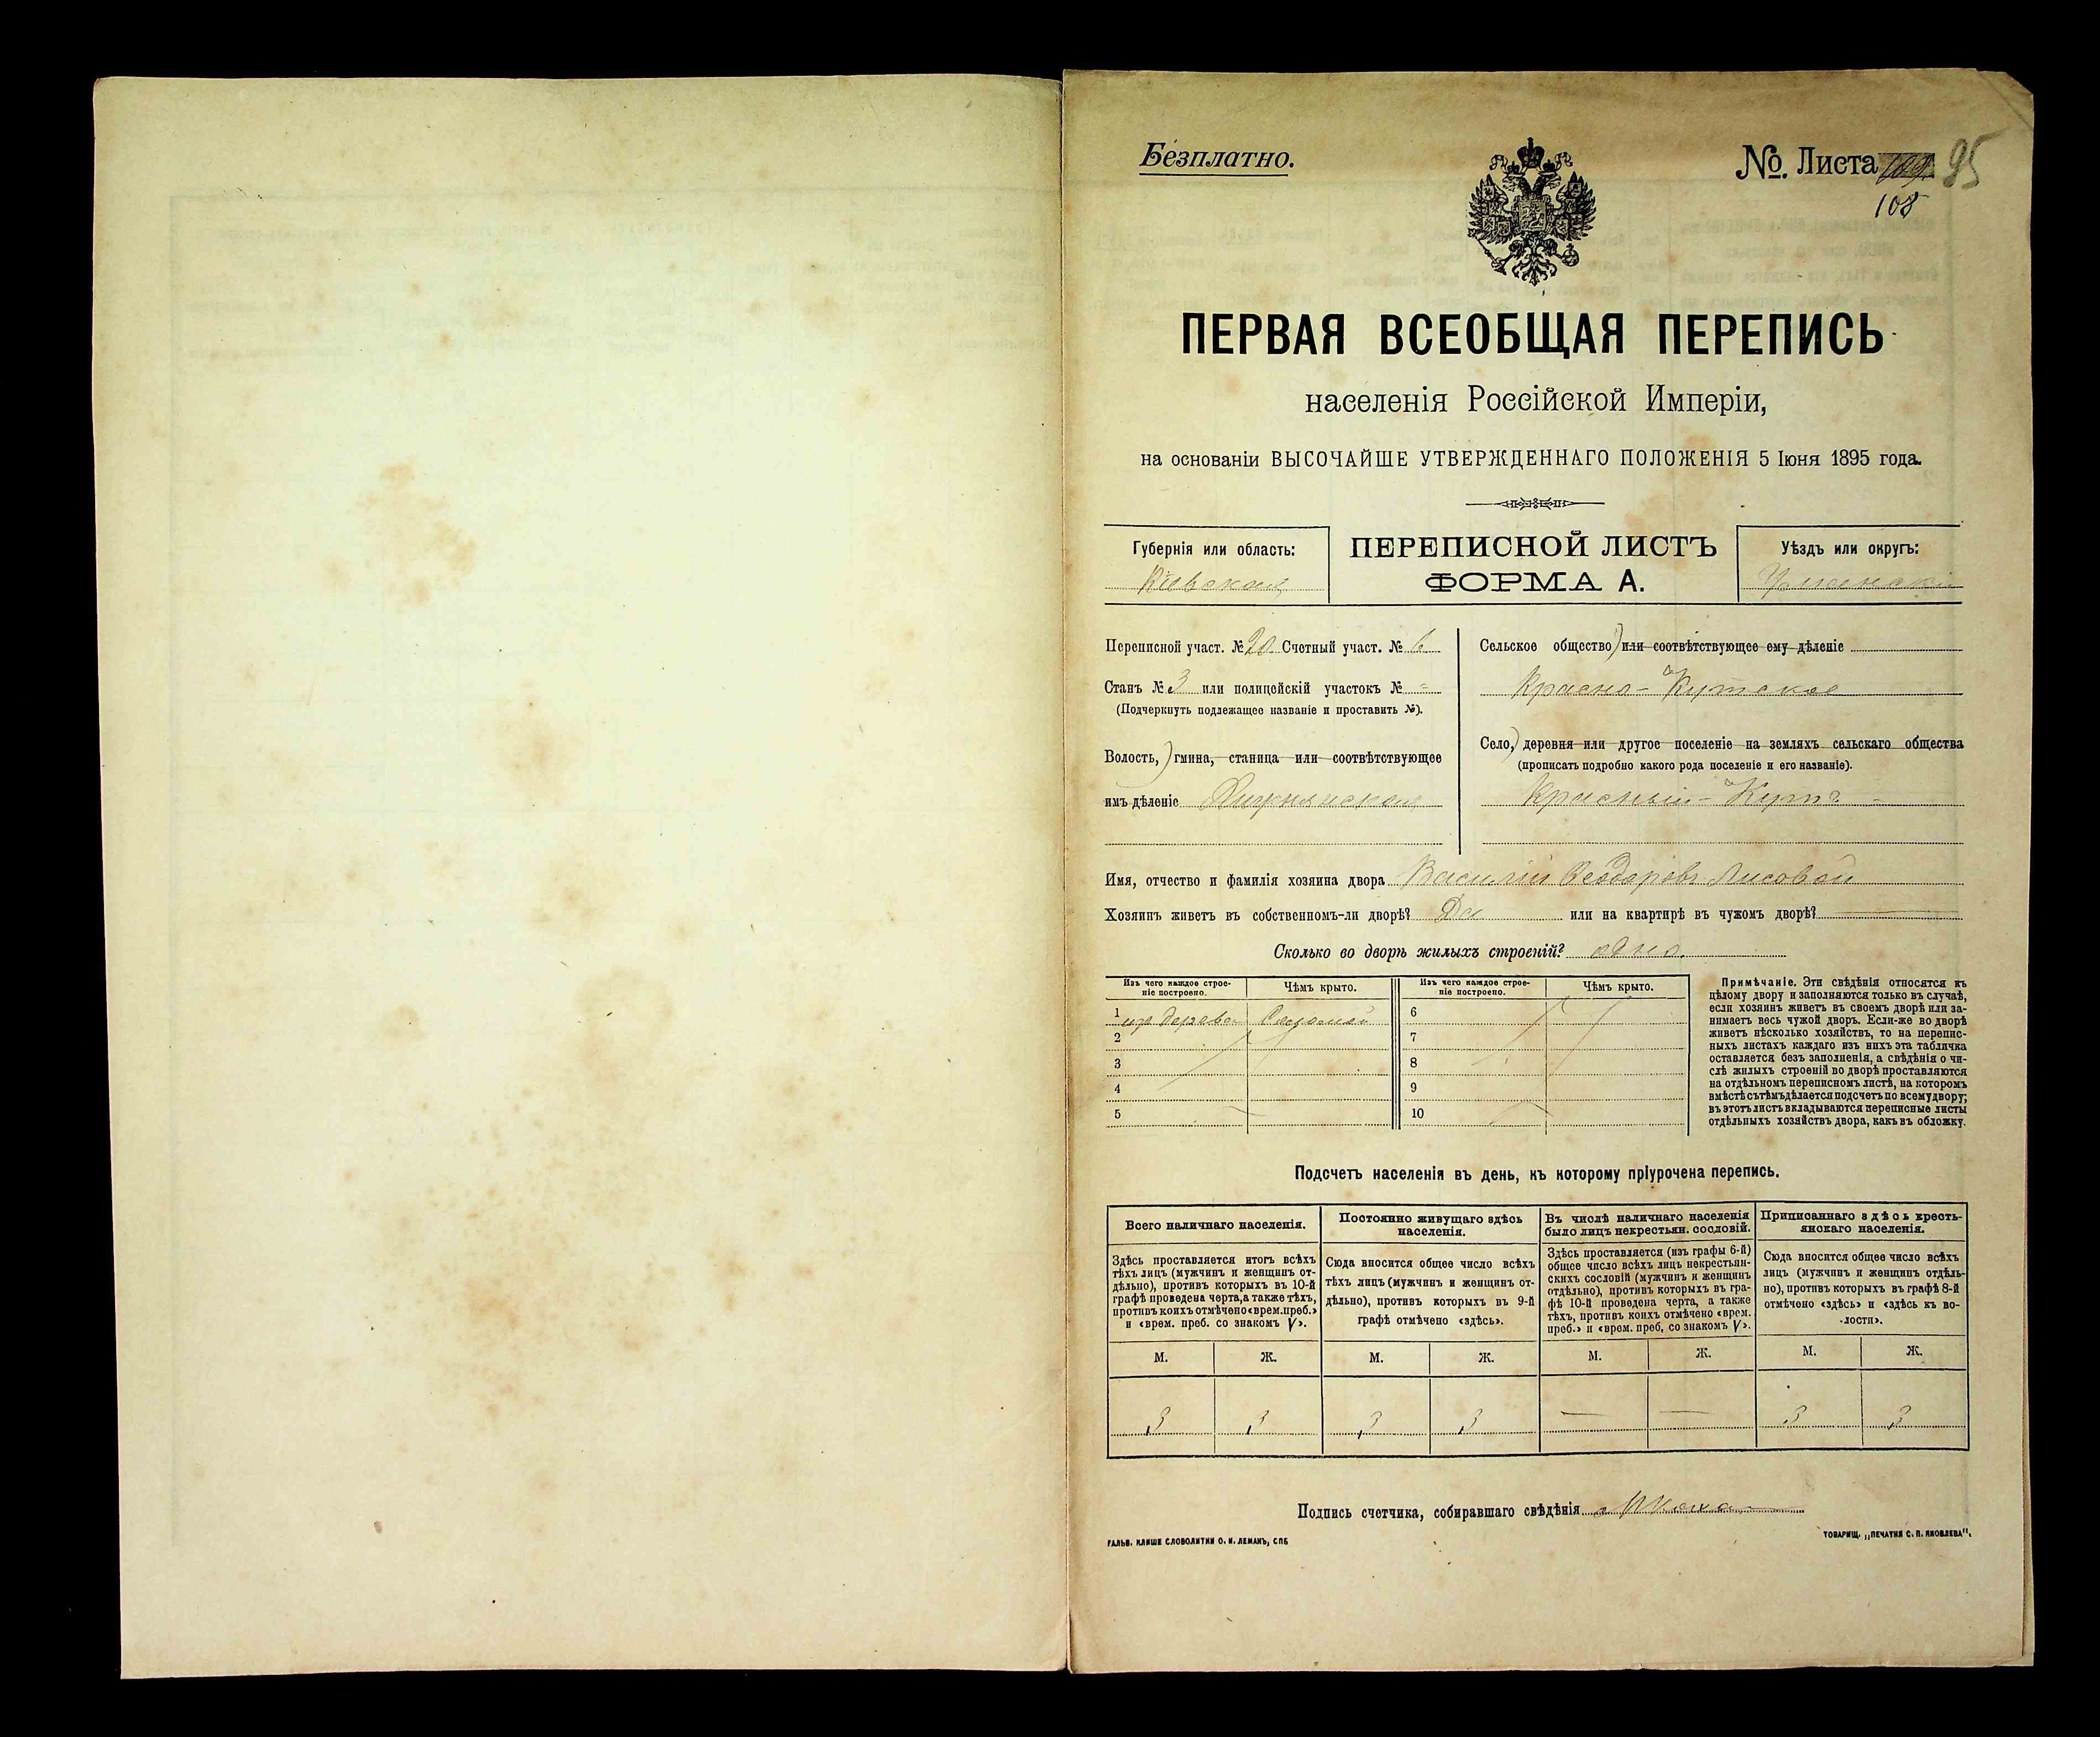 Безплатно.
№. Листа 95
108
ПЕРВАЯ ВСЕОБЩАЯ ПЕРЕПИСЬ
населенія Россійской Имперіи,
на основаніи ВЫСОЧАЙШЕ УТВЕРЖДЕННАГО ПОЛОЖЕНІЯ 5 Іюня 1895 года.
Губернія или область:
Кіевская
ПЕРЕПИСНОЙ ЛИСТЪ
ФОРМА А.
Уѣздъ или округъ:
Уманскій
Переписной участ. № 20 Счетный участ. № 6
Станъ № 3 или полицейскій участокъ № -
(Подчеркнуть подлежащее названіе и проставить №).
Волость, гмина, станица или соотвѣтствующее
имъ дѣленіе
Сельское общество или соотвѣтствующее ему дѣленіе
Красно-Кутское
Село, деревня или другое поселеніе на земляхъ сельскаго общества
(прописать подробно какого рода поселеніе и его названіе).
Красный-Кутъ
Имя, отчество и фамилія хозяина двора Василій Феодоровъ Лисовой
Хозяинъ живетъ въ собственномъ-ли дворѣ? Да или на квартирѣ въ чужомъ дворѣ?
Сколько во дворѣ жилыхъ строеній? одно.
Изъ чего каждое строе-
ніе построено.
Чѣмъ крыто.
Изъ чего каждое строе-
ніе построено.
Чѣмъ крыто.
1 изъ дерева Соломой 6
2 7
3 8
4 9
5 10
Примѣчаніе. Эти свѣдѣнія относятся къ
цѣлому двору и заполняются только въ случаѣ,
если хозяинъ живетъ въ своемъ дворѣ или за-
нимаетъ весь чужой дворъ. Если-же во дворѣ
живетъ нѣсколько хозяйствъ, то на перепис-
ныхъ листахъ каждаго изъ нихъ эта табличка
оставляется безъ заполненія, а свѣдѣнія о чи-
слѣ жилыхъ строеній во дворѣ проставляются
на отдѣльномъ переписномъ листѣ, на которомъ
вмѣстѣ съ тѣмъ дѣлается подсчетъ по всему двору;
въ этотъ листъ вкладываются переписные листы
отдѣльныхъ хозяйствъ двора, какъ въ обложку.
Подсчетъ населенія въ день, къ которому пріурочена перепись.
Всего наличнаго населенія.
Здѣсь проставляется итогъ всѣхъ
тѣхъ лицъ (мужчинъ и женщинъ от-
дѣльно), противъ которыхъ въ 10-й
графѣ проведена черта, а также тѣхъ,
противъ коихъ отмѣчено «врем. преб.»
и «врем. преб. со знакомъ V».
Постоянно живущаго здѣсь
населенія.
Сюда вносится общее число всѣхъ
тѣхъ лицъ (мужчинъ и женщинъ от-
дѣльно), противъ которыхъ въ 9-й
графѣ отмѣчено «здѣсь».
Въ числѣ наличнаго населенія
было лицъ некрестьян. сословій.
Здѣсь проставляется (изъ графы 6-й)
общее число всѣхъ лицъ некрестьян-
скихъ сословій (мужчинъ и женщинъ
отдѣльно), противъ которыхъ въ гра-
фѣ 10-й проведена черта, а также
тѣхъ, противъ коихъ отмѣчено «врем.
преб.» и «врем. преб, со знакомъ V».
Приписаннаго здѣсь кресть-
янскаго населенія.
Сюда вносится общее число всѣхъ
лицъ (мужчинъ и женщинъ отдѣль-
но), противъ которыхъ въ графѣ 8-й
отмѣчено «здѣсь» и «здѣсь въ во-
лости».
М. Ж. М. Ж. М. Ж. М. Ж.
3 3 3 3 — — 3 3
Подпись счетчика, собиравшаго свѣдѣнія
ГАЛЬВ. КЛИШЕ СЛОВОЛИТНИ О. И. ЛЕМАНЪ, СПБ
ТОВАРИЩ. „ПЕЧАТНЯ С. П. ЯКОВЛЕВА".